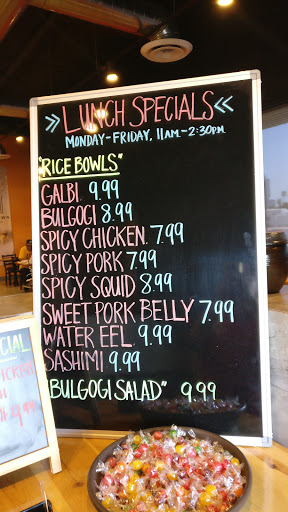 » LUNCH SPECIALS «
MONDAY-FRIDAY, 11AM-2:30PM
"RICE BOWLS"
GALBI 9.99
BULGOGI 8.99
SPICY CHICKEN 7.99
SPICY PORK 7.99
SPICY SQUID 8.99
SWEET PORK BELLY 7.99
WATER EEL 9.99
SASHIMI 9.99
"BULGOGI SALAD" 9.99